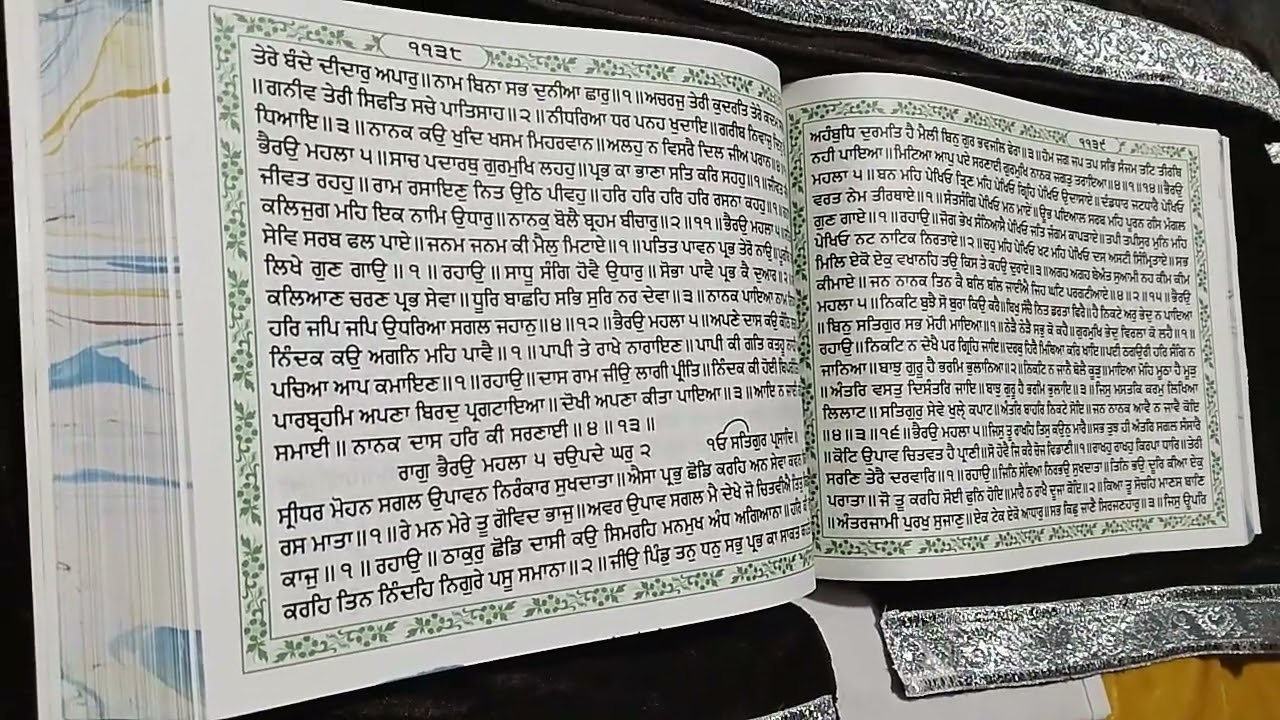 ੧੧੩੮
ਤੇਰੇ ਬੰਦੇ ਦੀਦਾਰੁ ਅਪਾਰੁ॥ਨਾਮ ਬਿਨਾ ਸਭ ਦੁਨੀਆ ਛਾਰੁ॥੧॥ਅਚਰਜੁ ਤੇਰੀ ਕੁਦਰਤਿ ਤੇਰੇ ਕਦਮ
॥ਗਨੀਵ ਤੇਰੀ ਸਿਫਤਿ ਸਚੇ ਪਾਤਿਸਾਹ॥੨॥ਨੀਧਰਿਆ ਧਰ ਪਨਹ ਖੁਦਾਇ॥ਗਰੀਬ ਨਿਵਾਜੁ
ਧਿਆਇ॥੩॥ਨਾਨਕ ਕਉ ਖੁਦਿ ਖਸਮ ਮਿਹਰਵਾਨ॥ਅਲਹੁ ਨ ਵਿਸਰੈ ਦਿਲ ਜੀਅ ਪਰਾਨ॥੪॥
ਭੈਰਉ ਮਹਲਾ ੫॥ਸਾਚ ਪਦਾਰਥੁ ਗੁਰਮੁਖਿ ਲਹਹੁ॥ਪ੍ਰਭ ਕਾ ਭਾਣਾ ਸਤਿ ਕਰਿ ਸਹਹੁ॥੧॥
ਜੀਵਤ ਰਹਹੁ॥ਰਾਮ ਰਸਾਇਣੁ ਨਿਤ ਉਠਿ ਪੀਵਹੁ॥ਹਰਿ ਹਰਿ ਹਰਿ ਹਰਿ ਰਸਨਾ ਕਹਹੁ॥੧॥
ਕਲਿਜੁਗ ਮਹਿ ਇਕ ਨਾਮਿ ਉਧਾਰੁ॥ਨਾਨਕੁ ਬੋਲੈ ਬ੍ਰਹਮ ਬੀਚਾਰੁ॥੨॥੧੧॥ਭੈਰਉ ਮਹਲਾ ੫॥
ਸੇਵਿ ਸਰਬ ਫਲ ਪਾਏ॥ਜਨਮ ਜਨਮ ਕੀ ਮੈਲੁ ਮਿਟਾਏ॥੧॥ਪਤਿਤ ਪਾਵਨ ਪ੍ਰਭ ਤੇਰੋ ਨਾਉ॥
ਲਿਖੇ ਗੁਣ ਗਾਉ॥੧॥ਰਹਾਉ॥ਸਾਧੂ ਸੰਗਿ ਹੋਵੈ ਉਧਾਰੁ॥ਸੋਭਾ ਪਾਵੈ ਪ੍ਰਭ ਕੈ ਦੁਆਰ॥੨॥
ਕਲਿਆਣ ਚਰਣ ਪ੍ਰਭ ਸੇਵਾ॥ਧੂਰਿ ਬਾਛਹਿ ਸਭਿ ਸੁਰਿ ਨਰ ਦੇਵਾ॥੩॥ਨਾਨਕ ਪਾਇਆ ਨਾਮ
ਹਰਿ ਜਪਿ ਜਪਿ ਉਧਰਿਆ ਸਗਲ ਜਹਾਨੁ॥੪॥੧੨॥ਭੈਰਉ ਮਹਲਾ ੫॥ਅਪਣੇ ਦਾਸ ਕਉ ਕੰਠਿ
ਨਿੰਦਕ ਕਉ ਅਗਨਿ ਮਹਿ ਪਾਵੈ॥੧॥ਪਾਪੀ ਤੇ ਰਾਖੇ ਨਾਰਾਇਣ॥ਪਾਪੀ ਕੀ ਗਤਿ ਕਤਹੂ ਨਾਹੀ
ਪਚਿਆ ਆਪ ਕਮਾਇਣ॥੧॥ਰਹਾਉ॥ਦਾਸ ਰਾਮ ਜੀਉ ਲਾਗੀ ਪ੍ਰੀਤਿ॥ਨਿੰਦਕ ਕੀ ਹੋਈ
ਪਾਰਬ੍ਰਹਮਿ ਅਪਣਾ ਬਿਰਦੁ ਪ੍ਰਗਟਾਇਆ॥ਦੋਖੀ ਅਪਣਾ ਕੀਤਾ ਪਾਇਆ॥੩॥ਆਇ ਨ
ਸਮਾਈ॥ਨਾਨਕ ਦਾਸ ਹਰਿ ਕੀ ਸਰਣਾਈ॥੪॥੧੩॥
ਰਾਗੁ ਭੈਰਉ ਮਹਲਾ ੫ ਚਉਪਦੇ ਘਰੁ ੨ ੴ ਸਤਿਗੁਰ ਪ੍ਰਸਾਦਿ॥
ਸ੍ਰੀਧਰ ਮੋਹਨ ਸਗਲ ਉਪਾਵਨ ਨਿਰੰਕਾਰ ਸੁਖਦਾਤਾ॥ਐਸਾ ਪ੍ਰਭੁ ਛੋਡਿ ਕਰਹਿ ਅਨ ਸੇਵਾ
ਰਸ ਮਾਤਾ॥੧॥ਰੇ ਮਨ ਮੇਰੇ ਤੂ ਗੋਵਿਦ ਭਾਜੁ॥ਅਵਰ ਉਪਾਵ ਸਗਲ ਮੈ ਦੇਖੇ ਜੋ ਚਿਤਵੀਐ
ਕਾਜੁ॥੧॥ਰਹਾਉ॥ਠਾਕੁਰੁ ਛੋਡਿ ਦਾਸੀ ਕਉ ਸਿਮਰਹਿ ਮਨਮੁਖ ਅੰਧ ਅਗਿਆਨਾ॥ਹਰਿ
ਕਰਹਿ ਤਿਨ ਨਿੰਦਹਿ ਨਿਗੁਰੇ ਪਸੂ ਸਮਾਨਾ॥੨॥ਜੀਉ ਪਿੰਡੁ ਤਨੁ ਧਨੁ ਸਭੁ ਪ੍ਰਭ ਕਾ ਸਾਕਤ
੧੧੩੯
ਅਹੰਬੁਧਿ ਦੁਰਮਤਿ ਹੈ ਮੈਲੀ ਬਿਨੁ ਗੁਰ ਭਵਜਲਿ ਫੇਰਾ॥੩॥ਹੋਮ ਜਗ ਜਪ ਤਪ ਸਭਿ ਸੰਜਮ ਤਟਿ ਤੀਰਥਿ
ਨਹੀ ਪਾਇਆ॥ਮਿਟਿਆ ਆਪੁ ਪਏ ਸਰਣਾਈ ਗੁਰਮੁਖਿ ਨਾਨਕ ਜਗਤੁ ਤਰਾਇਆ॥੪॥੧॥੧੪॥ਭੈਰਉ
ਮਹਲਾ ੫॥ਬਨ ਮਹਿ ਪੇਖਿਓ ਤ੍ਰਿਣ ਮਹਿ ਪੇਖਿਓ ਗ੍ਰਿਹਿ ਪੇਖਿਓ ਉਦਾਸਾਏ॥ਦੰਡਧਾਰ ਜਟਧਾਰੈ ਪੇਖਿਓ
ਵਰਤ ਨੇਮ ਤੀਰਥਾਏ॥੧॥ਸੰਤਸੰਗਿ ਪੇਖਿਓ ਮਨ ਮਾਏਂ॥ਊਭ ਪਇਆਲ ਸਰਬ ਮਹਿ ਪੂਰਨ ਰਸਿ ਮੰਗਲ
ਗੁਣ ਗਾਏ॥੧॥ਰਹਾਉ॥ਜੋਗ ਭੇਖ ਸੰਨਿਆਸੈ ਪੇਖਿਓ ਜਤਿ ਜੰਗਮ ਕਾਪੜਾਏ॥ਤਪੀ ਤਪੀਸੁਰ ਮੁਨਿ ਮਹਿ
ਪੇਖਿਓ ਨਟ ਨਾਟਿਕ ਨਿਰਤਾਏ॥੨॥ਚਹੁ ਮਹਿ ਪੇਖਿਓ ਖਟ ਮਹਿ ਪੇਖਿਓ ਦਸ ਅਸਟੀ ਸਿੰਮ੍ਰਿਤਾਏ॥ਸਭ
ਮਿਲਿ ਏਕੋ ਏਕੁ ਵਖਾਨਹਿ ਤਉ ਕਿਸ ਤੇ ਕਹਉ ਦੁਰਾਏ॥੩॥ਅਗਹ ਅਗਹ ਬੇਅੰਤ ਸੁਆਮੀ ਨਹ ਕੀਮ ਕੀਮ
ਕੀਮਾਏ॥ਜਨ ਨਾਨਕ ਤਿਨ ਕੈ ਬਲਿ ਬਲਿ ਜਾਈਐ ਜਿਹ ਘਟਿ ਪਰਗਟੀਆਏ॥੪॥੨॥੧੫॥ਭੈਰਉ
ਮਹਲਾ ੫॥ਨਿਕਟਿ ਬੁਝੈ ਸੋ ਬੁਰਾ ਕਿਉ ਕਰੈ॥ਬਿਖੁ ਸੰਚੈ ਨਿਤ ਡਰਤਾ ਫਿਰੈ॥ਹੈ ਨਿਕਟੇ ਅਰੁ ਭੇਦੁ ਨ ਪਾਇਆ
॥ਬਿਨੁ ਸਤਿਗੁਰ ਸਭ ਮੋਹੀ ਮਾਇਆ॥੧॥ਨੇੜੈ ਨੇੜੈ ਸਭੁ ਕੋ ਕਹੈ॥ਗੁਰਮੁਖਿ ਭੇਦੁ ਵਿਰਲਾ ਕੋ ਲਹੈ॥੧॥
ਰਹਾਉ॥ਨਿਕਟਿ ਨ ਦੇਖੈ ਪਰ ਗ੍ਰਿਹਿ ਜਾਇ॥ਦਰਬੁ ਹਿਰੈ ਮਿਥਿਆ ਕਰਿ ਖਾਇ॥ਪਈ ਠਗਉਰੀ ਹਰਿ ਸੰਗਿ ਨ
ਜਾਨਿਆ॥ਬਾਝੁ ਗੁਰੂ ਹੈ ਭਰਮਿ ਭੁਲਾਨਿਆ॥੨॥ਨਿਕਟਿ ਨ ਜਾਨੈ ਬੋਲੈ ਕੂੜੁ॥ਮਾਇਆ ਮੋਹਿ ਮੂਠਾ ਹੈ ਮੂੜੁ
॥ਅੰਤਰਿ ਵਸਤੁ ਦਿਸੰਤਰਿ ਜਾਇ॥ਬਾਝੁ ਗੁਰੂ ਹੈ ਭਰਮਿ ਭੁਲਾਇ॥੩॥ਜਿਸੁ ਮਸਤਕਿ ਕਰਮੁ ਲਿਖਿਆ
ਲਿਲਾਟ॥ਸਤਿਗੁਰੁ ਸੇਵੇ ਖੁਲ੍ਹੇ ਕਪਾਟ॥ਅੰਤਰਿ ਬਾਹਰਿ ਨਿਕਟੇ ਸੋਇ॥ਜਨ ਨਾਨਕ ਆਵੈ ਨ ਜਾਵੈ ਕੋਇ
॥੪॥੩॥੧੬॥ਭੈਰਉ ਮਹਲਾ ੫॥ਜਿਸੁ ਤੂ ਰਾਖਹਿ ਤਿਸੁ ਕਉਨੁ ਮਾਰੈ॥ਸਭ ਤੁਝ ਹੀ ਅੰਤਰਿ ਸਗਲ ਸੰਸਾਰੈ
॥ਕੋਟਿ ਉਪਾਵ ਚਿਤਵਤ ਹੈ ਪ੍ਰਾਣੀ॥ਸੋ ਹੋਵੈ ਜਿ ਕਰੈ ਚੋਜ ਵਿਡਾਣੀ॥੧॥ਰਾਖਹੁ ਰਾਖਹੁ ਕਿਰਪਾ ਧਾਰਿ॥ਤੇਰੀ
ਸਰਣਿ ਤੇਰੈ ਦਰਵਾਰਿ॥੧॥ਰਹਾਉ॥ਜਿਨਿ ਸੇਵਿਆ ਨਿਰਭਉ ਸੁਖਦਾਤਾ॥ਤਿਨਿ ਭਉ ਦੂਰਿ ਕੀਆ ਏਕੁ
ਪਰਾਤਾ॥ਜੋ ਤੂ ਕਰਹਿ ਸੋਈ ਫੁਨਿ ਹੋਇ॥ਮਾਰੈ ਨ ਰਾਖੈ ਦੂਜਾ ਕੋਇ॥੨॥ਕਿਆ ਤੂ ਸੋਚਹਿ ਮਾਣਸ ਬਾਣਿ
॥ਅੰਤਰਜਾਮੀ ਪੁਰਖੁ ਸੁਜਾਣੁ॥ਏਕ ਟੇਕ ਏਕੋ ਆਧਾਰੁ॥ਸਭ ਕਿਛੁ ਜਾਣੈ ਸਿਰਜਣਹਾਰੁ॥੩॥ਜਿਸੁ ਊਪਰਿ